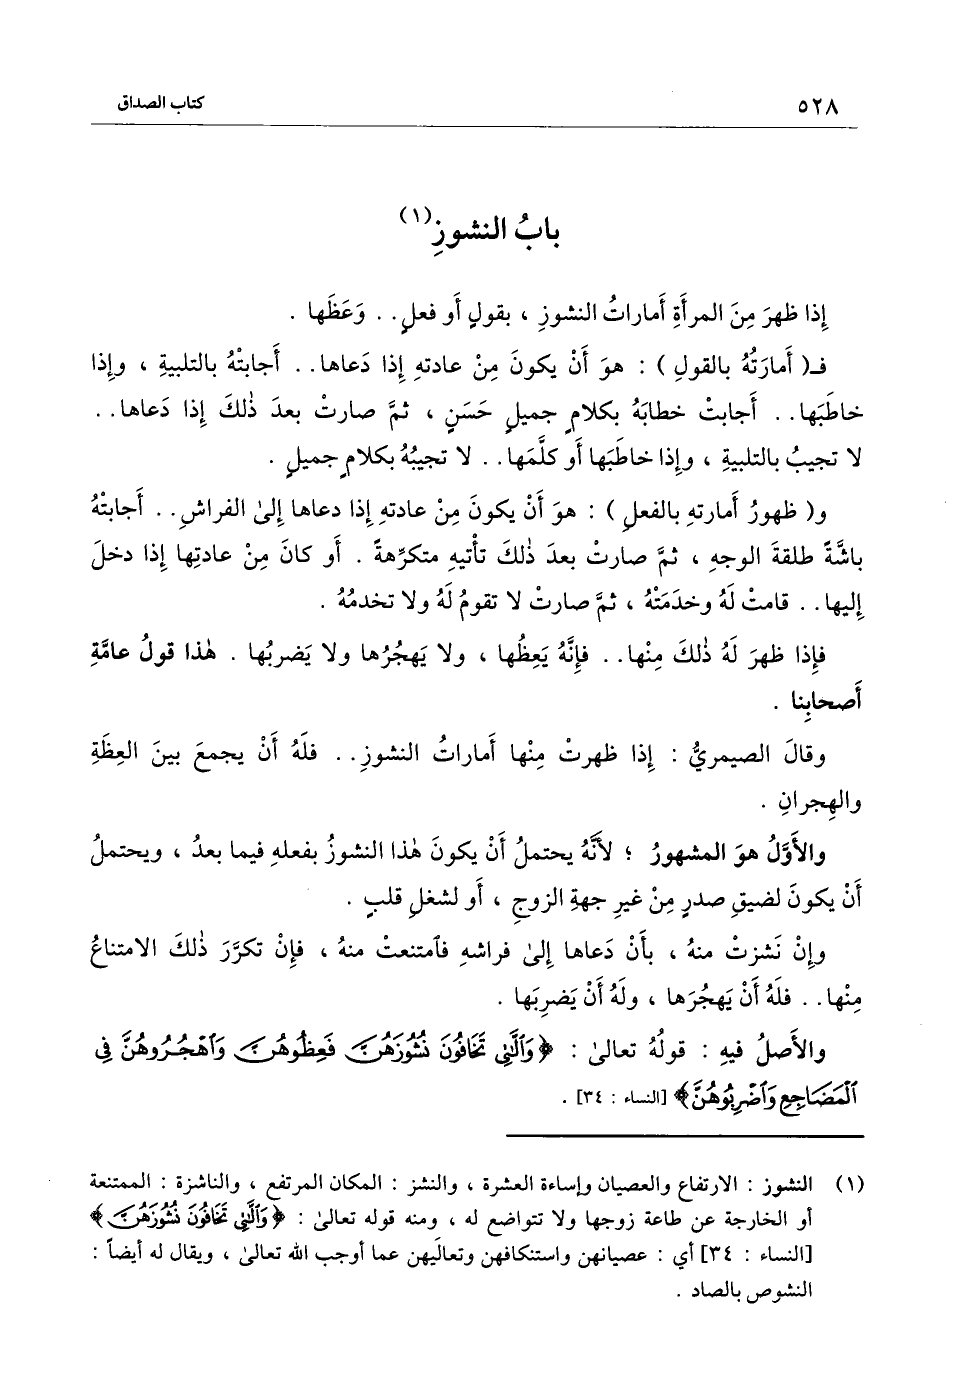 ٥٢٨ كتاب الصداق
بابُ النشوزِ(١)
إِذا ظهرَ مِنَ المرأَةِ أَماراتُ النشوزِ ، بقولٍ أَو فعلٍ . . وَعَظَها .
فـ( أَمارَتُهُ بالقولِ ) : هوَ أَنْ يكونَ مِنْ عادتهِ إِذا دَعاها . . أَجابتْهُ بالتلبيةِ ، وإِذا
خاطَبَها . . أَجابتْ خطابَهُ بكلامٍ جميلٍ حَسَنٍ ، ثمَّ صارتْ بعدَ ذٰلكَ إِذا دَعاها . .
لا تجيبُ بالتلبيةِ ، وإِذا خاطَبَها أَو كلَّمَها . . لا تجيبُهُ بكلامٍ جميلٍ .
و( ظهورُ أَمارتهِ بالفعلِ ) : هوَ أَنْ يكونَ مِنْ عادتهِ إِذا دعاها إِلىٰ الفراشِ . . أَجابتْهُ
باشَّةً طلقةَ الوجهِ ، ثمَّ صارتْ بعدَ ذٰلكَ تأْتيهِ متكرِّهةً . أَو كانَ مِنْ عادتِها إِذا دخلَ
إِليها . . قامتْ لَهُ وخدَمَتْهُ ، ثمَّ صارتْ لا تقومُ لَهُ ولا تخدمُهُ .
فإِذا ظهرَ لَهُ ذٰلكَ مِنْها . . فإِنَّهُ يَعِظُها ، ولا يَهجُرُها ولا يَضربُها . هٰذا قولُ عامَّةِ
أَصحابِنا .
وقالَ الصيمريُّ : إِذا ظهرتْ مِنْها أَماراتُ النشوزِ . . فلَهُ أَنْ يجمعَ بينَ العِظَةِ
والهِجرانِ .
والأَوَّلُ هوَ المشهورُ ؛ لأَنَّهُ يحتملُ أَنْ يكونَ هٰذا النشوزُ بفعلهِ فيما بعدُ ، ويحتملُ
أَنْ يكونَ لضيقِ صدرٍ مِنْ غيرِ جهةِ الزوجِ ، أَو لشغلِ قلبٍ .
وإِنْ نَشزتْ منهُ ، بأَنْ دَعاها إِلىٰ فراشهِ فٱمتنعتْ منهُ ، فإِنْ تكرَّرَ ذٰلكَ الامتناعُ
مِنْها . . فلَهُ أَنْ يَهجُرَها ، ولَهُ أَنْ يَضرِبَها .
والأَصلُ فيهِ : قولُهُ تعالىٰ : ﴿وَٱلَّٰتِى تَخَافُونَ نُشُوزَهُنَّ فَعِظُوهُنَّ وَٱهْجُرُوهُنَّ فِى
ٱلْمَضَاجِعِ وَٱضْرِبُوهُنَّ﴾ [النساء : ٣٤] .
(١) النشوز : الارتفاع والعصيان وإساءة العشرة ، والنشز : المكان المرتفع ، والناشزة : الممتنعة
أو الخارجة عن طاعة زوجها ولا تتواضع له ، ومنه قوله تعالىٰ : ﴿وَٱلَّٰتِى تَخَافُونَ نُشُوزَهُنَّ﴾
[النساء : ٣٤] أي : عصيانهن واستنكافهن وتعاليهن عما أوجب الله تعالىٰ ، ويقال له أيضاً :
النشوص بالصاد .